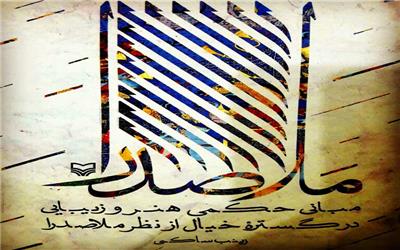 ملاصدرا
مبانی حکمی هنر و زیبایی
در گسترهٔ خیال از نظر ملاصدرا
زینب ساکی